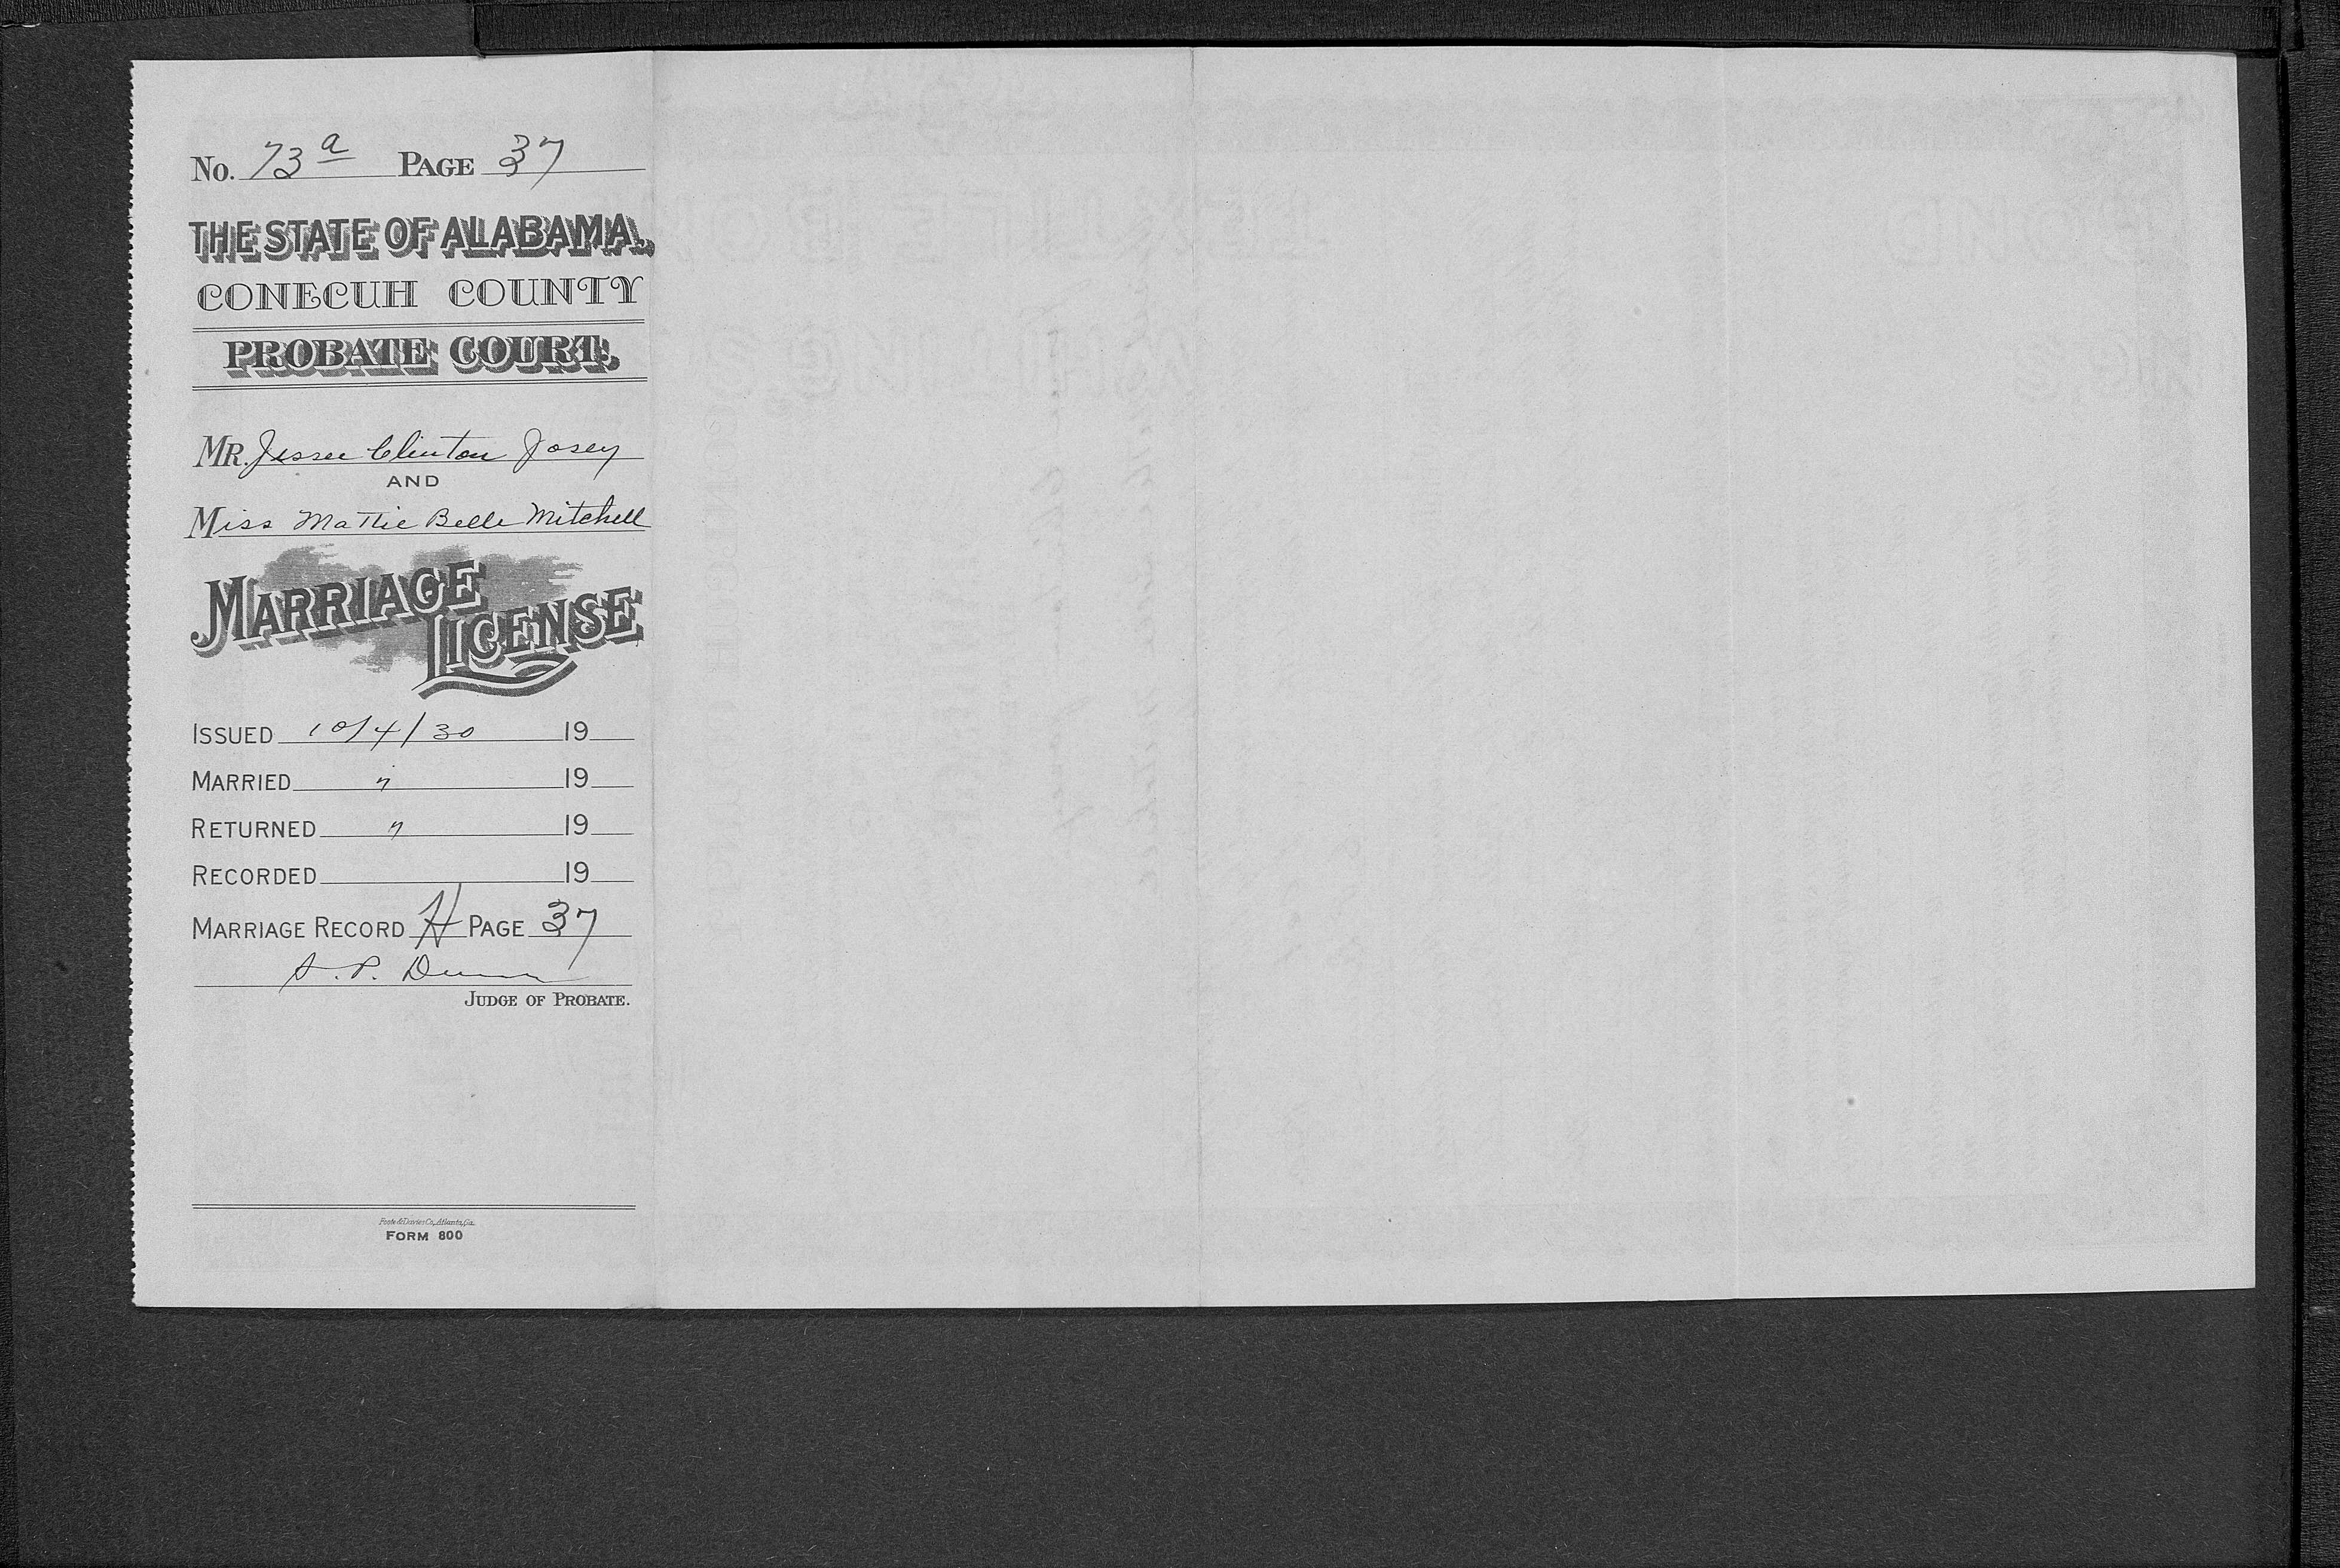 No. 73 a PAGE 37
THE STATE OF ALABAMA,
CONECUH COUNTY
PROBATE COURT.
MR. Jessee Clinton Josey
AND
Miss Mattie Belle Mitchell
MARRIAGE
LICENSE
ISSUED 10/4/30 19
MARRIED " 19
RETURNED " 19
RECORDED 19
MARRIAGE RECORD H PAGE 37
S. P. Dunn
JUDGE OF PROBATE.
Foote & Davies Co., Atlanta, Ga.
FORM 800